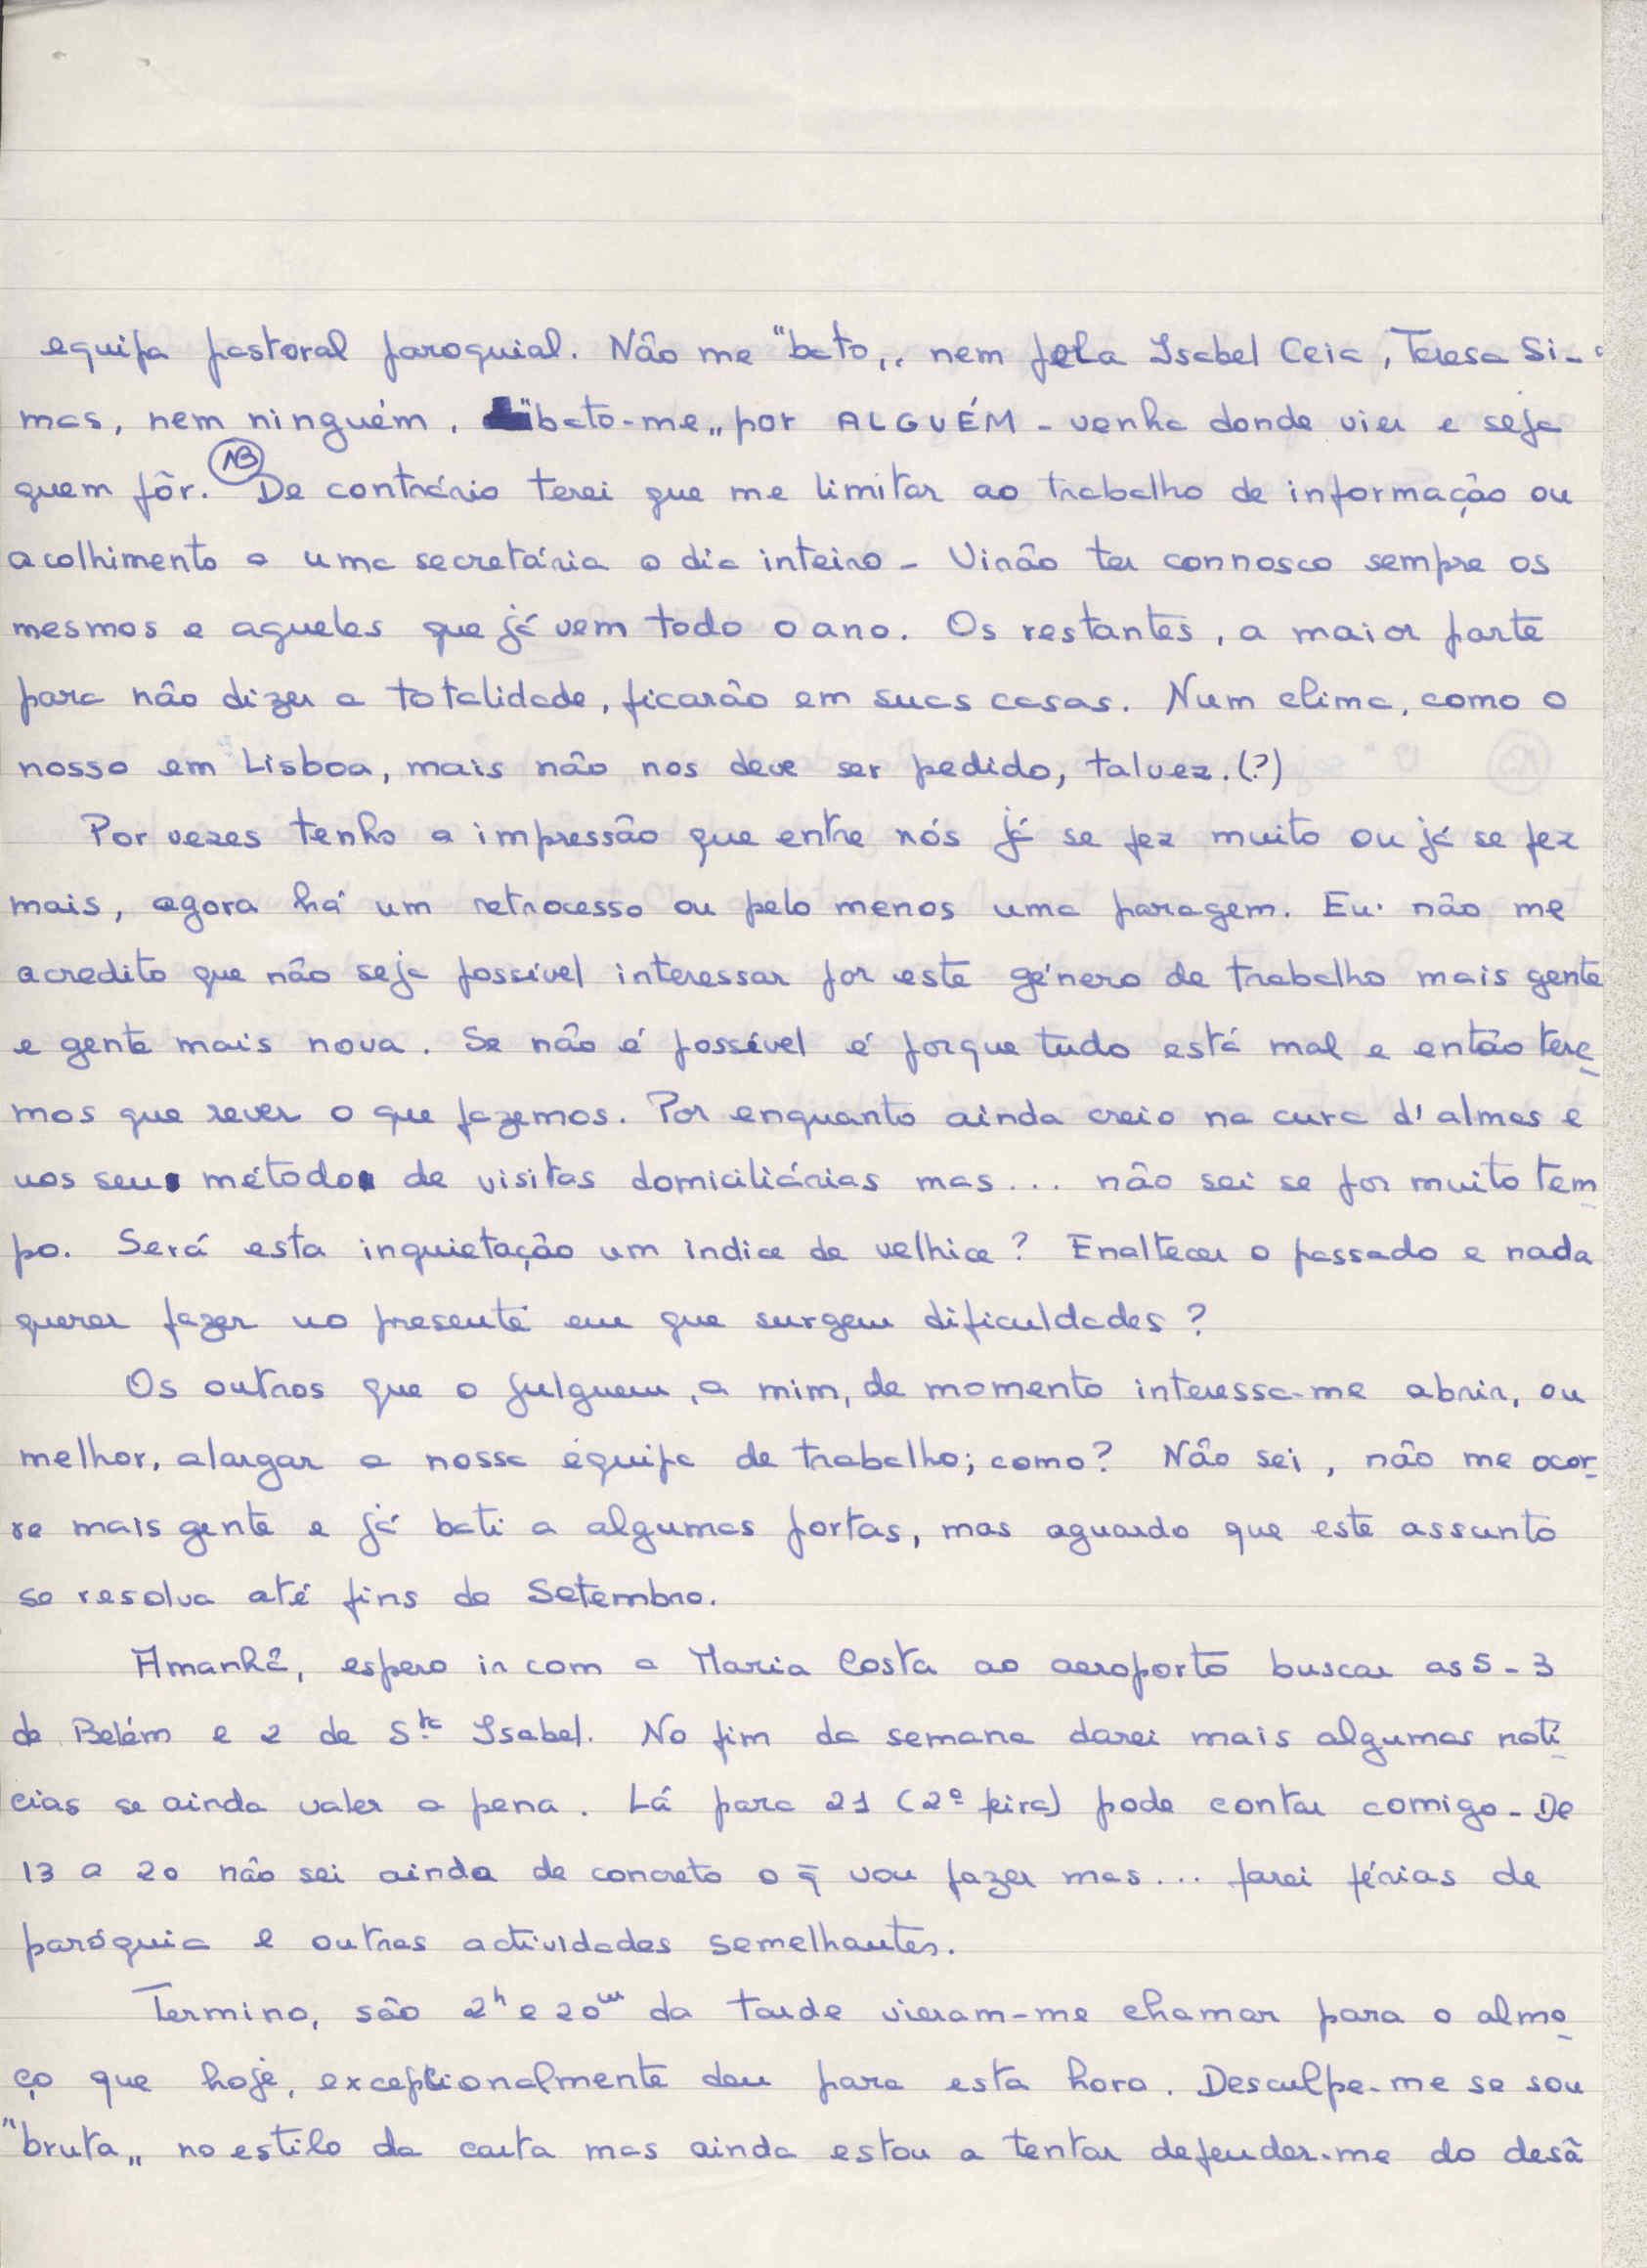 equipa pastoral paroquial. Não me "bato„ nem pela Isabel Ceia, Teresa Si-
mas, nem ninguém, "bato-me„ por ALGUÉM - venha donde vier e seja
quem fôr. NB De contrário terei que me limitar ao trabalho de informação ou
acolhimento a uma secretária o dia inteiro - Virão ter connosco sempre os
mesmos e aqueles que já vem todo o ano. Os restantes, a maior parte
para não dizer a totalidade, ficarão em suas casas. Num clima, como o
nosso em Lisboa, mais não nos deve ser pedido, talvez. (?)
Por vezes tenho a impressão que entre nós já se fez muito ou já se fez
mais, agora há um retrocesso ou pelo menos uma paragem. Eu não me
acredito que não seja possível interessar por este género de trabalho mais gente
e gente mais nova. Se não é possível é porque tudo está mal e então tere
mos que rever o que fazemos. Por enquanto ainda creio na cura d'almas e
nos seus métodos de visitas domiciliárias mas... não sei se por muito tem
po. Será esta inquietação um indice de velhice? Enaltecer o passado e nada
querer fazer no presente em que surgem dificuldades?
Os outros que o julguem, a mim, de momento interessa-me abrir, ou
melhor, alargar a nossa équipa de trabalho; como? Não sei, não me ocor
re mais gente e já bati a algumas portas, mas aguardo que este assunto
se resolva até fins de Setembro.
Amanhã, espero ir com a Maria Costa ao aeroporto buscar as 5 - 3
de Belém e 2 de Sta Isabel. No fim da semana darei mais algumas notí
cias se ainda valer a pena. Lá para 21 (2ª feira) pode contar comigo - De
13 a 20 não sei ainda de concreto o q̄ vou fazer mas... farei férias de
paróquia e outras actividades semelhantes.
Termino, são 2h e 20m da tarde vieram-me chamar para o almo
ço que hoje, excepcionalmente deu para esta hora. Desculpe-me se sou
"bruta„ no estilo da carta mas ainda estou a tentar defender-me do desâ